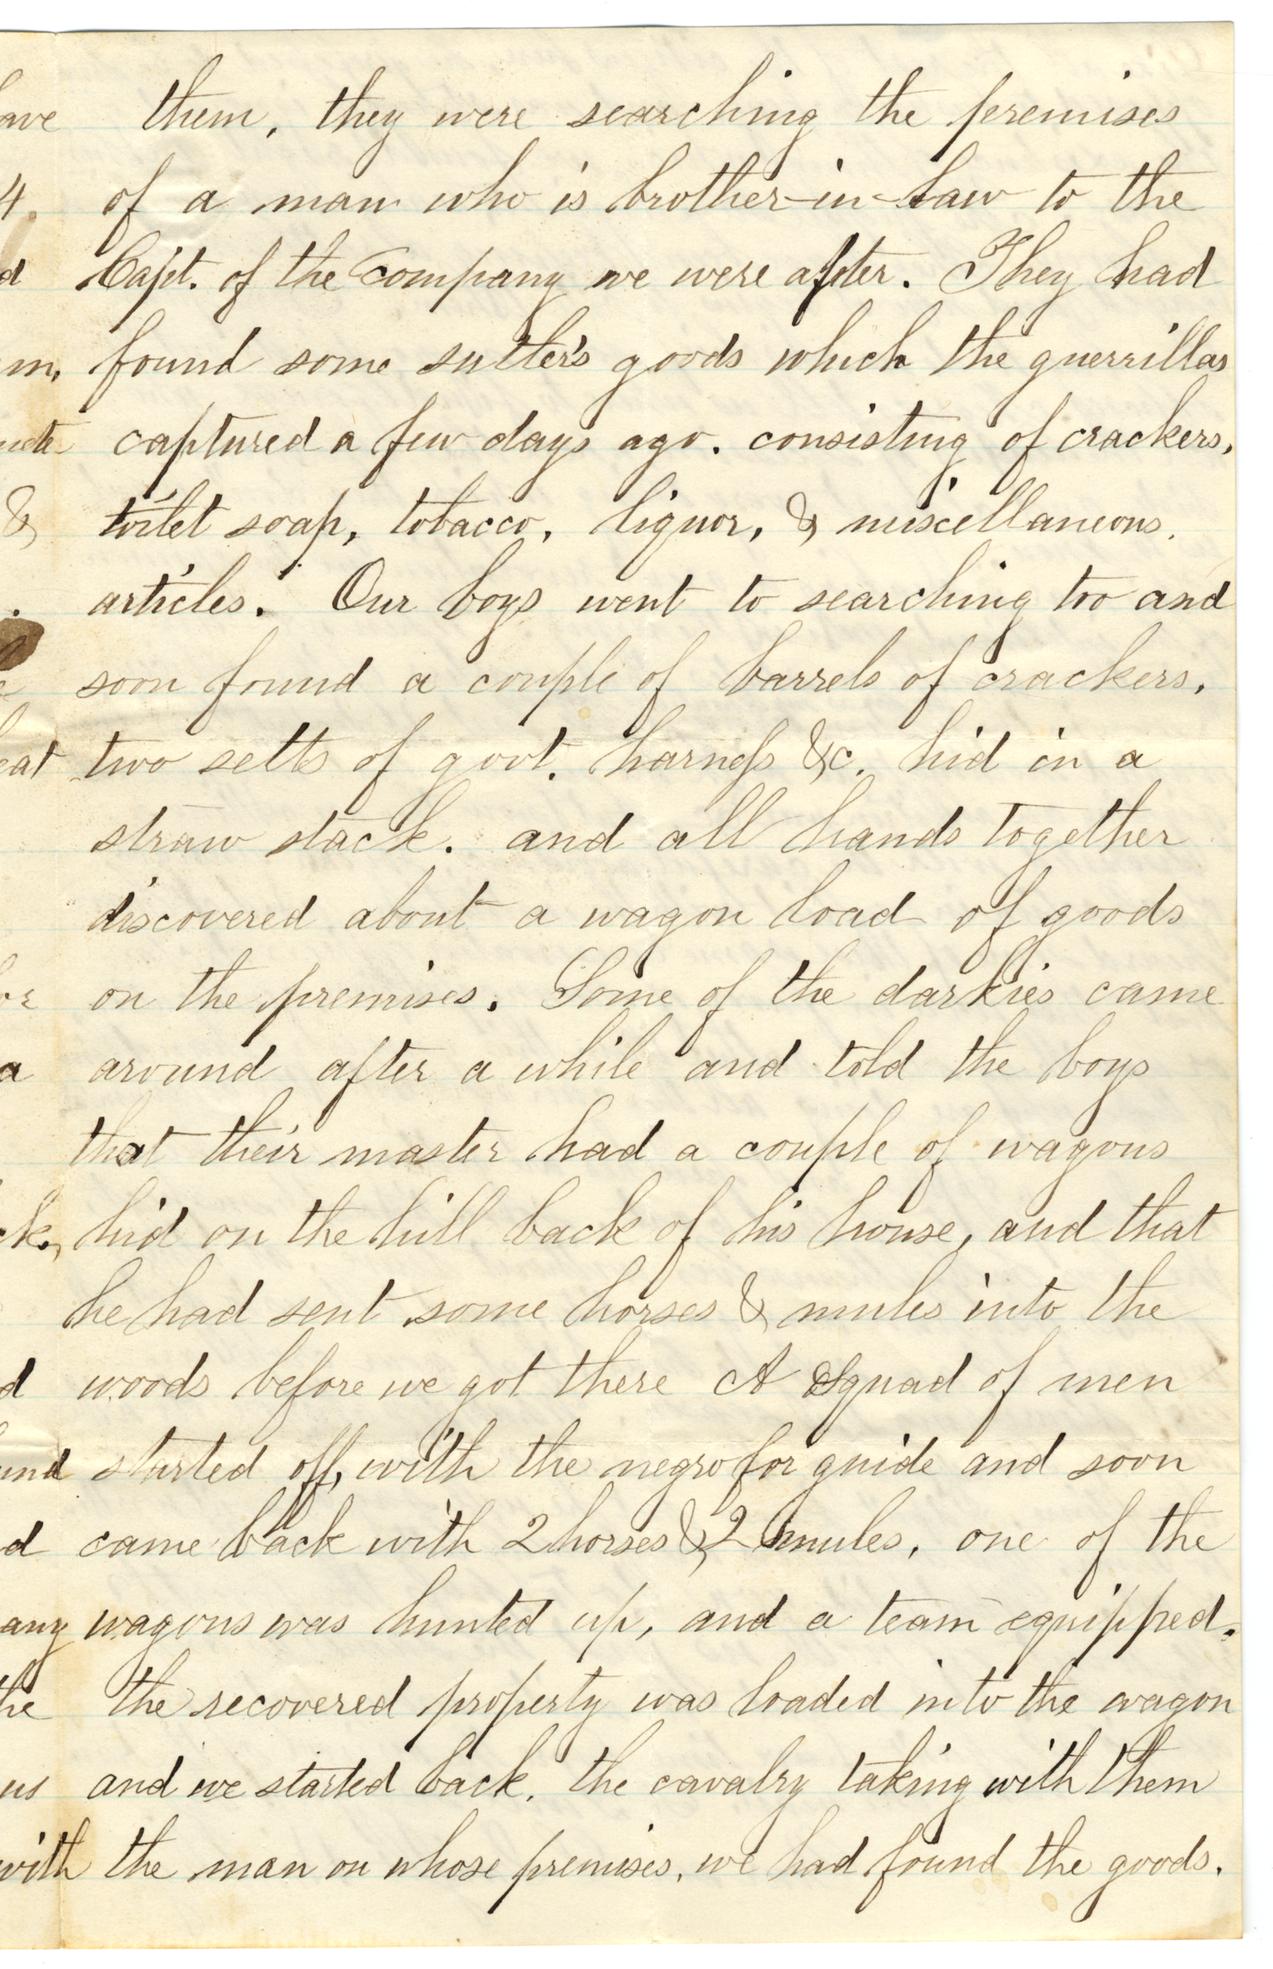 them, they were searching the premises
of a man who is brother-in-Law to the
Capt. of the Company we were after. They had
found some sutler's goods which the guerrillas
captured a few days ago. consisting of crackers,
toilet soap, tobacco, liquor, & miscellaneous.
articles. Our boys went to searching too and
soon found a couple of barrels of crackers,
two setts of govt. harness &c. hid in a
straw stack. and all hands together
discovered about a wagon load of goods
on the premises. Some of the darkies came
around after a while and told the boys
that their master had a couple of wagons
hid on the hill back of his house, and that
he had sent some horses & mules into the
woods before we got there A Squad of men
started off, with the negro for guide and soon
came back with 2 horses & 2 mules, one of the
wagons was hunted up, and a team equipped.
the recovered property was loaded into the wagon
and we started back. the cavalry taking with them
the man on whose premises, we had found the goods.